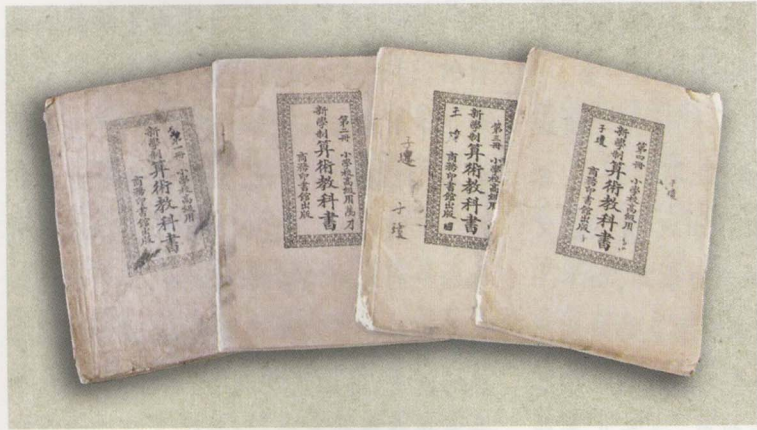 第一冊 小學校高級用
新學制算術教科書
商務印書館出版
第二冊 小學校高級用
新學制算術教科書
商務印書館出版
第三冊 小學校高級用
新學制算術教科書
商務印書館出版
第四冊 小學校高級用
新學制算術教科書
商務印書館出版